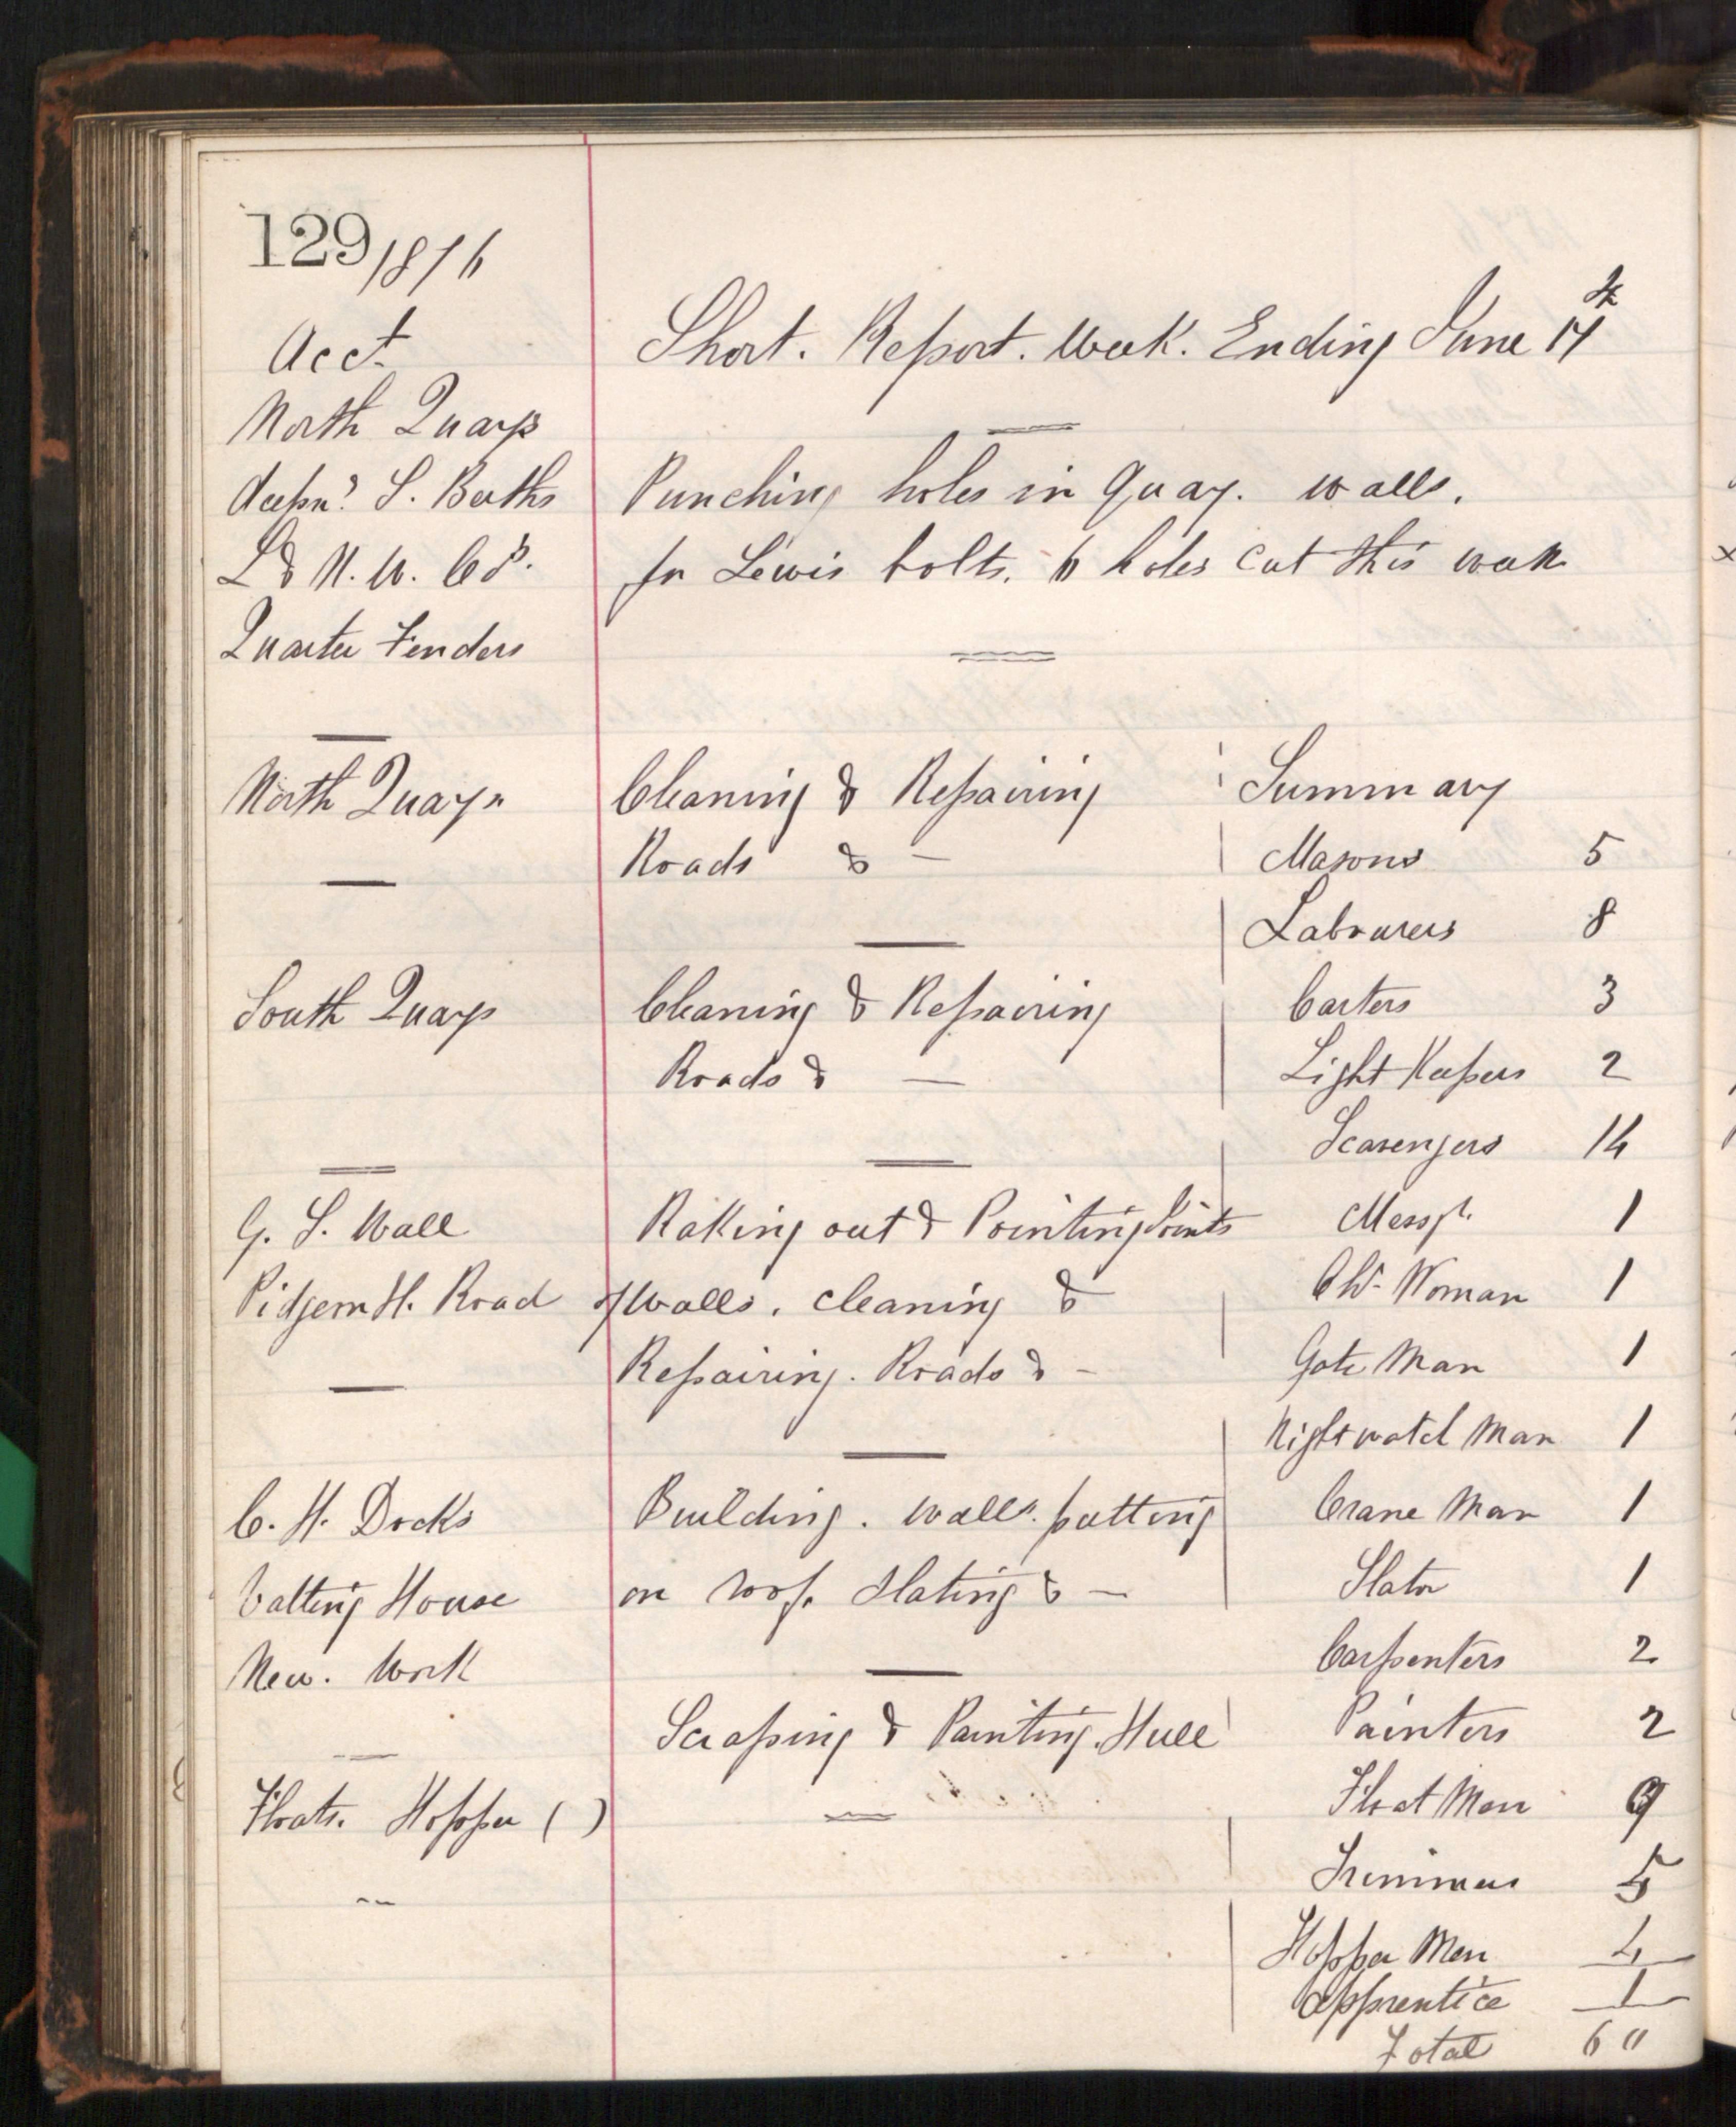 129/1876
Acct
Short. Report. Week. Ending June 14th
North Quays
Deepng S. Berths
Punching holes in Quay. walls.
L & N. W. Co's.
for Lewis bolts. 6 holes cut this week
Quarter Fenders
North Quays
Cleaning & Repairing
Roads &
South Quays
Cleaning & Repairing
Roads &
G. S. Wall
Raking out & Pointing Joints
Pidgeon H. Road
of walls. cleaning &
Repairing. Roads &
C. H. Docks
Building. walls. putting
Vatting House
on roof. Slating &
New. Work
Scraping & Painting. Hull
Floats. Hopper ( )
Summary
Masons 5
Labourers 8
Carters 3
Light Keepers 2
Scavengers 14
Messgr. 1
Ch. Woman 1
Gate Man 1
Nightwatch Man 1
Crane Man 1
Slater 1
Carpenters 2
Painters 2
Float Men 9
Trimmers 5
Hopper Men 4
Apprentice 1
Total